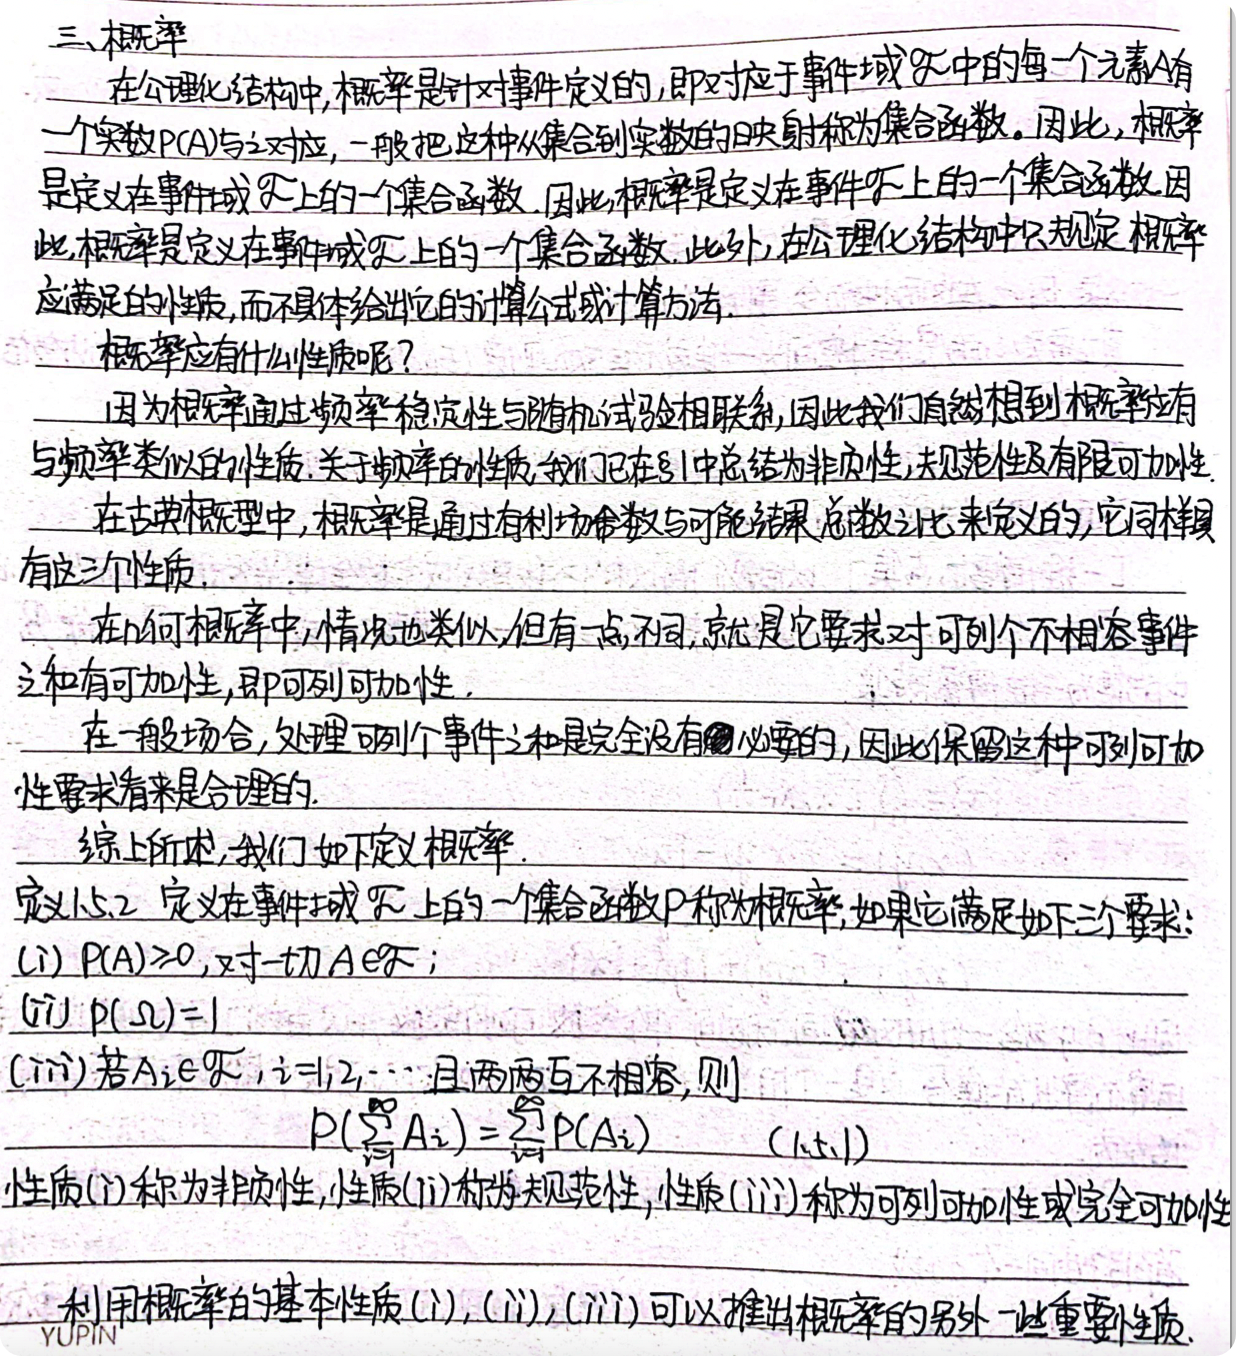 三、概率
在公理化结构中,概率是针对事件定义的,即对应于事件域ℱ中的每一个元素A有
一个实数P(A)与之对应,一般把这种从集合到实数的映射称为集合函数。因此,概率
是定义在事件域ℱ上的一个集合函数.因此,概率是定义在事件ℱ上的一个集合函数.因
此,概率是定义在事件域ℱ上的一个集合函数.此外,在公理化结构中只规定概率
应满足的性质,而不具体给出它的计算公式或计算方法.
概率应有什么性质呢?
因为概率通过频率稳定性与随机试验相联系,因此我们自然想到概率应有
与频率类似的性质.关于频率的性质,我们已在§1中总结为非负性,规范性及有限可加性.
在古典概型中,概率是通过有利场合数与可能结果总数之比来定义的,它同样具
有这三个性质.
在几何概率中,情况也类似,但有一点不同,就是它要求对可列个不相容事件
之和有可加性,即可列可加性.
在一般场合,处理可列个事件之和是完全没有必要的,因此保留这种可列可加
性要求看来是合理的.
综上所述,我们如下定义概率.
定义1.5.2 定义在事件域ℱ上的一个集合函数P称为概率,如果它满足如下三个要求:
(i) P(A)≥0,对一切A∈ℱ;
(ii) P(Ω)=1
(iii) 若Ai∈ℱ,i=1,2,⋯且两两互不相容,则
P(∑_{i=1}^{∞} Ai)=∑_{i=1}^{∞} P(Ai) (1.5.1)
性质(i)称为非负性,性质(ii)称为规范性,性质(iii)称为可列可加性或完全可加性
利用概率的基本性质(i),(ii),(iii)可以推出概率的另外一些重要性质.
YUPIN